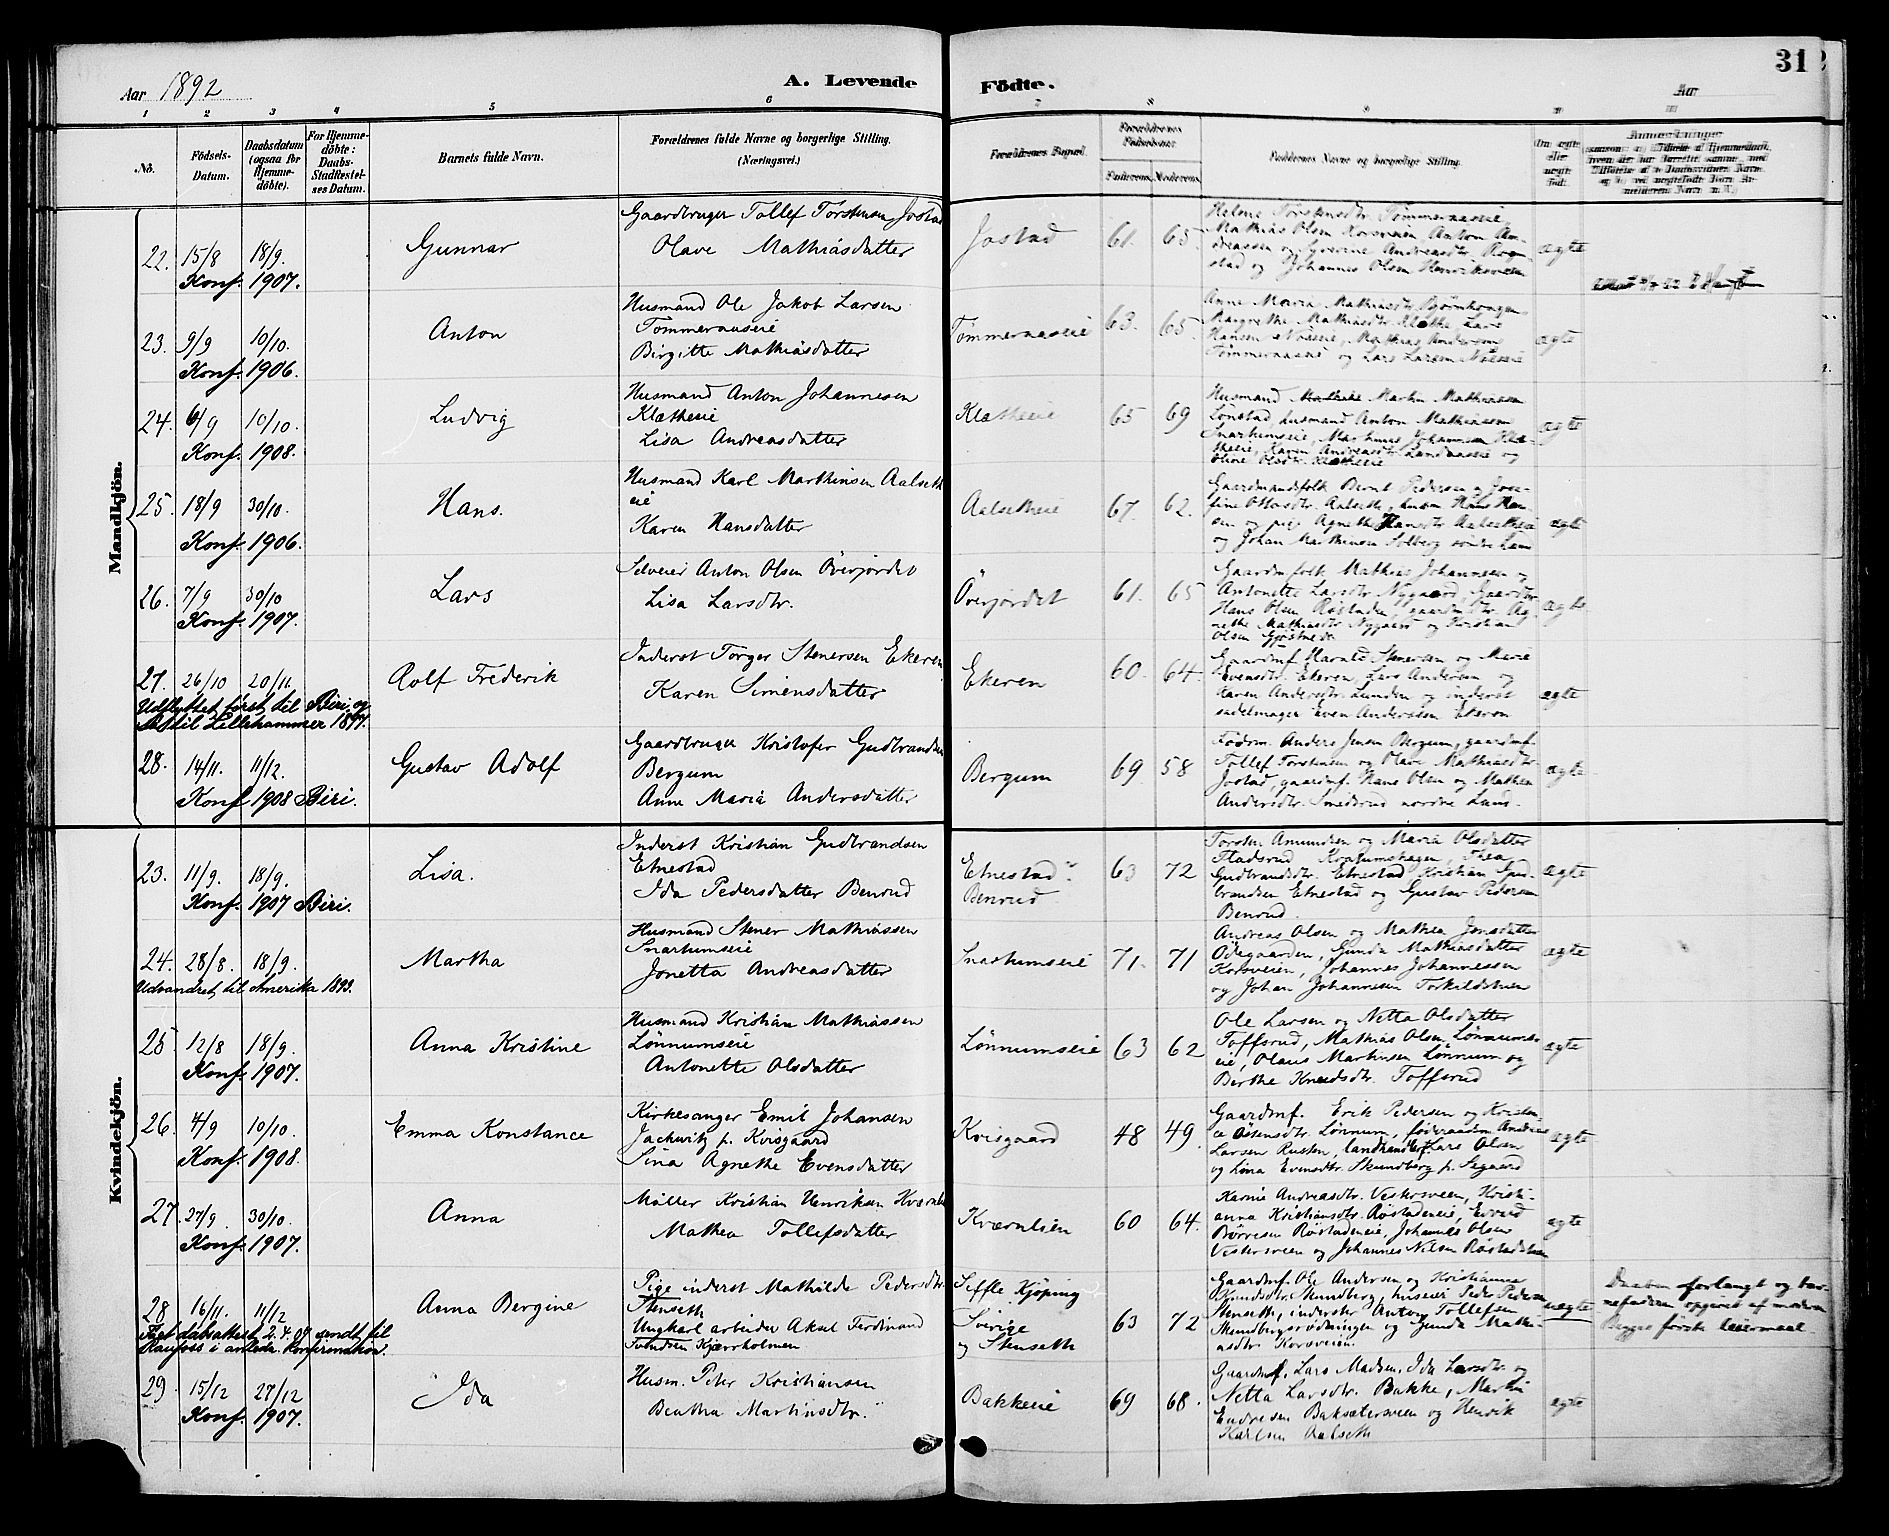 Aar 1892
A. Levende
Födte.
31
Aar
1 2 3 4 5 6 7 8 9
No.
Födsels-Datum.
Daabsdatum (ogsaa for Hjemme-döbte).
For Hjemme-döbte: Daabs-Stadfæstel-ses Datum.
Barnets fulde Navn.
Forældrenes fulde Navne og borgerlige Stilling. (Næringsvei.)
Forældrenes Bopæl.
Forældrenes Födselsaar.
Faderens. Moderens.
Faddernes Navne og borgerlige Stilling.
Om ægte eller uægte født.
Mandkjön.
22. 15/8 18/9. Gunnar
Konf. 1907.
Gaardbruger Tollef Torstensen Jostad
Olave Mathiasdatter
Jostad 61. 65.
Helene Torstensdtr. Tømmernaaseie,
Mathias Olsen Korsveien, Anton An-
dreassen og
stad og Johannes Olsen Henriksveen
ægte
23. 9/9 10/10. Anton
Konf. 1906.
Husmand Ole Jakob Larsen
Tømmernaaseie
Birgitte Mathiasdatter
Tømmernaaseie 63. 65.
Anne Maria Mathiasdtr.
Margrethe Mathiasdtr. Klæthe, Lars
Hansen
Tømmernaaseie og Lars Larsen
ægte
24. 6/9 10/10. Ludvig
Konf. 1908.
Husmand Anton Johannesen
Klætheie
Lisa Andreasdatter
Klætheie 65 69
Husmand Martin Mathiassen
Lønstad, husmand Anton Mathiassen
Snarhumseie, Marthinus Johannesen Klæ-
theie, Karen Andreasdtr. og
Oline Olsdtr. Klætheie
ægte
25. 18/9 30/10. Hans.
Konf. 1906.
Husmand Karl Marthinsen Aalseth
eie
Karen Hansdatter
Aalsetheie 67. 62.
Gaardmandsfolk Bernt Pedersen og Jose-
fine Ottersdtr. Aalseth, Hans Han-
sen og pige Agnethe Hansdtr. Aalsetheie
og Johan Marthinsen Solberg
ægte
26. 7/9 30/10 Lars
Konf. 1907.
Selveier Anton Olsen Överjordet
Lisa Larsdtr.
Överjordet 61. 65
Gaardmfolk Mathias Johannesen og
Antonette Larsdtr. Nygaard, Gaardbr.
Hans Olsen gaardmdtr. Ag-
nethe Mathiasdtr. Nygaard og Kristian
Olsen
ægte
27. 26/10 20/11. Rolf Fréderik
Udflyttet først til Biri og
til Lillehammer 1897.
Inderst Torger Stenersen Ekeren
Karen Simensdatter
Ekeren 60. 64.
Gaardmf. Harald Stenersen og Marie
Evensdtr. Ekeren, Lars Andersen og
Karen Andersdtr. Lunden og inderst
sadelmager Even Anderssen Ekeren
ægte
28. 14/11. 11/12. Gustav Adolf
Konf. 1908 Biri.
Gaardbruger Kristofer Gudbrandsen
Bergum
Anne Maria Andersdatter
Bergum 69. 58
Föderm. Anders Jensen Bergum, gaardmf.
Tollef Torstensen og Olave Mathiasdtr.
Jostad, gaardmf. Hans Olsen og Mathea
Andersdtr. Smedsrud nordre Land.
ægte
Kvindekjön.
23. 11/9. 18/9. Lisa.
Konf. 1907 Biri.
Inderst Kristian Gudbrandsen
Etnestad
Ida Pedersdatter Benrud
Etnestad
Benrud
63 72
Torsten Amundsen og Maria Olsdatter
Stadsrud Thea
Gudbrandsdtr. Etnestad Kristian Gud-
brandsen Etnestad og Gustav Pedersen
Benrud.
ægte
24. 28/8. 18/9. Martha
Udvandret til Amerika 1893.
Husmand Stener Mathiassen
Snarhumseie
Jonetta Andreasdatter
Snarhumseie 71. 71
Andreas Olsen og Mathea Jonsdatter
Ödegaarden, Gunda Mathiasdatter
Korsveien, Johannes Johannessen
og Johan Johannesen Torkildstuen
ægte
25. 12/8 18/9. Anna Kristine
Konf. 1907.
Husmand Kristian Mathiassen
Lönnumseie
Antonette Olsdatter
Lönnumseie 63 62
Ole Larsen og Netta Olsdatter
Toffsrud, Mathias Olsen Lönnums-
eie, Olaus Martinsen Lönnum og
Berthe Knudsdtr. Toffsrud
ægte
26. 4/9 10/10. Emma Konstance
Konf. 1908.
Kirkesanger Emil Johansen
Jachwitz p. Kvisgaard
Sina Agnethe Evensdatter
Kvisgaard 48 49.
Gaardmf. Erik Pedersen og Kristen-
ce Östensdtr. Lönnum, föderaadsm Andreas
Larsen Rusten, landhandler Lars Olsen
og Lina Evensdtr. Skundberg p. Segaard
ægte
27. 27/9. 30/10. Anna
Konf. 1907.
Møller Kristian Henriksen Kværnli
Mathea Tollefsdatter
Kværnlien 60 64.
Karine Andreasdtr. Vestersveen, Kristi-
anna Kristiansdtr. Røstadeneie, Eivind
Börresen Røstadeneie, Johannes Olsen
Vestersveen og Johannes Nilsen
ægte
28 16/11. 11/12 Anna Bergine
Faet dabsattest 2.4.08 sendt til
Raufoss i anledn. konfirmation.
Pige inderst Mathilde Pedersdtr.
Stenseth
Ungkarl arbeider Aksel Ferdinand
Svendsen Kjærrholmen
Seffle Kjöping
Sverige
og Stenseth
63 72
Gaardmf. Ole Andersen og Kristianna
Knudsdtr. Skundberg, huseier Peder Pedersen
Stenseth, inderster Anton Tollefsen
Skundbergsrødningen og Gunda Mathi-
asdtr. Korsveien.
uægte
Daaben forlangt og bar-
nefaderen opgivet af moderen
Begges første leiermaal.
29. 15/12 27/12 Ida
Konf. 1907.
Husm. Peter Kristiansen
Beatha Martinsdtr.
Bakkeeie 69 68.
Gaardmf. Lars Madsen, Ida Larsdtr. og
Netta Larsdtr. Bakke, Martin
Endresen Baksætersveen og Henrik
Karlsen Aalseth
ægte